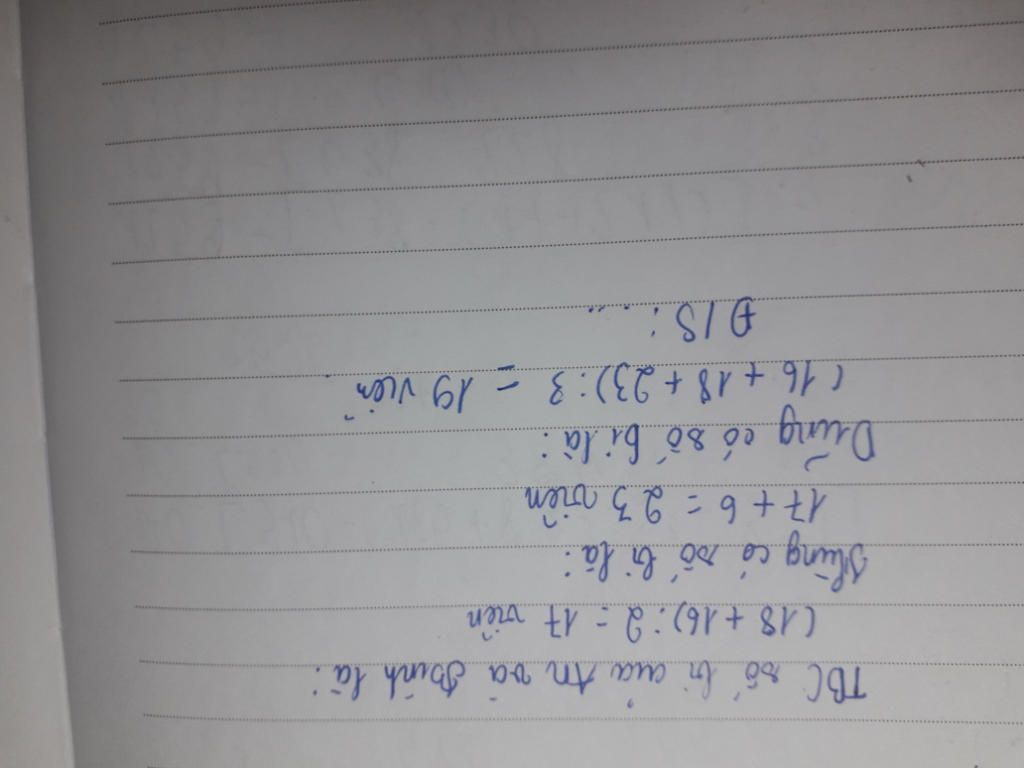 TBC số bi của An và Bình là:
(18 + 16) : 2 = 17 viên
Hùng có số bi là:
17 + 6 = 23 viên
Dũng có số bi là:
(16 + 18 + 23) : 3 = 19 viên
Đ/S : ....